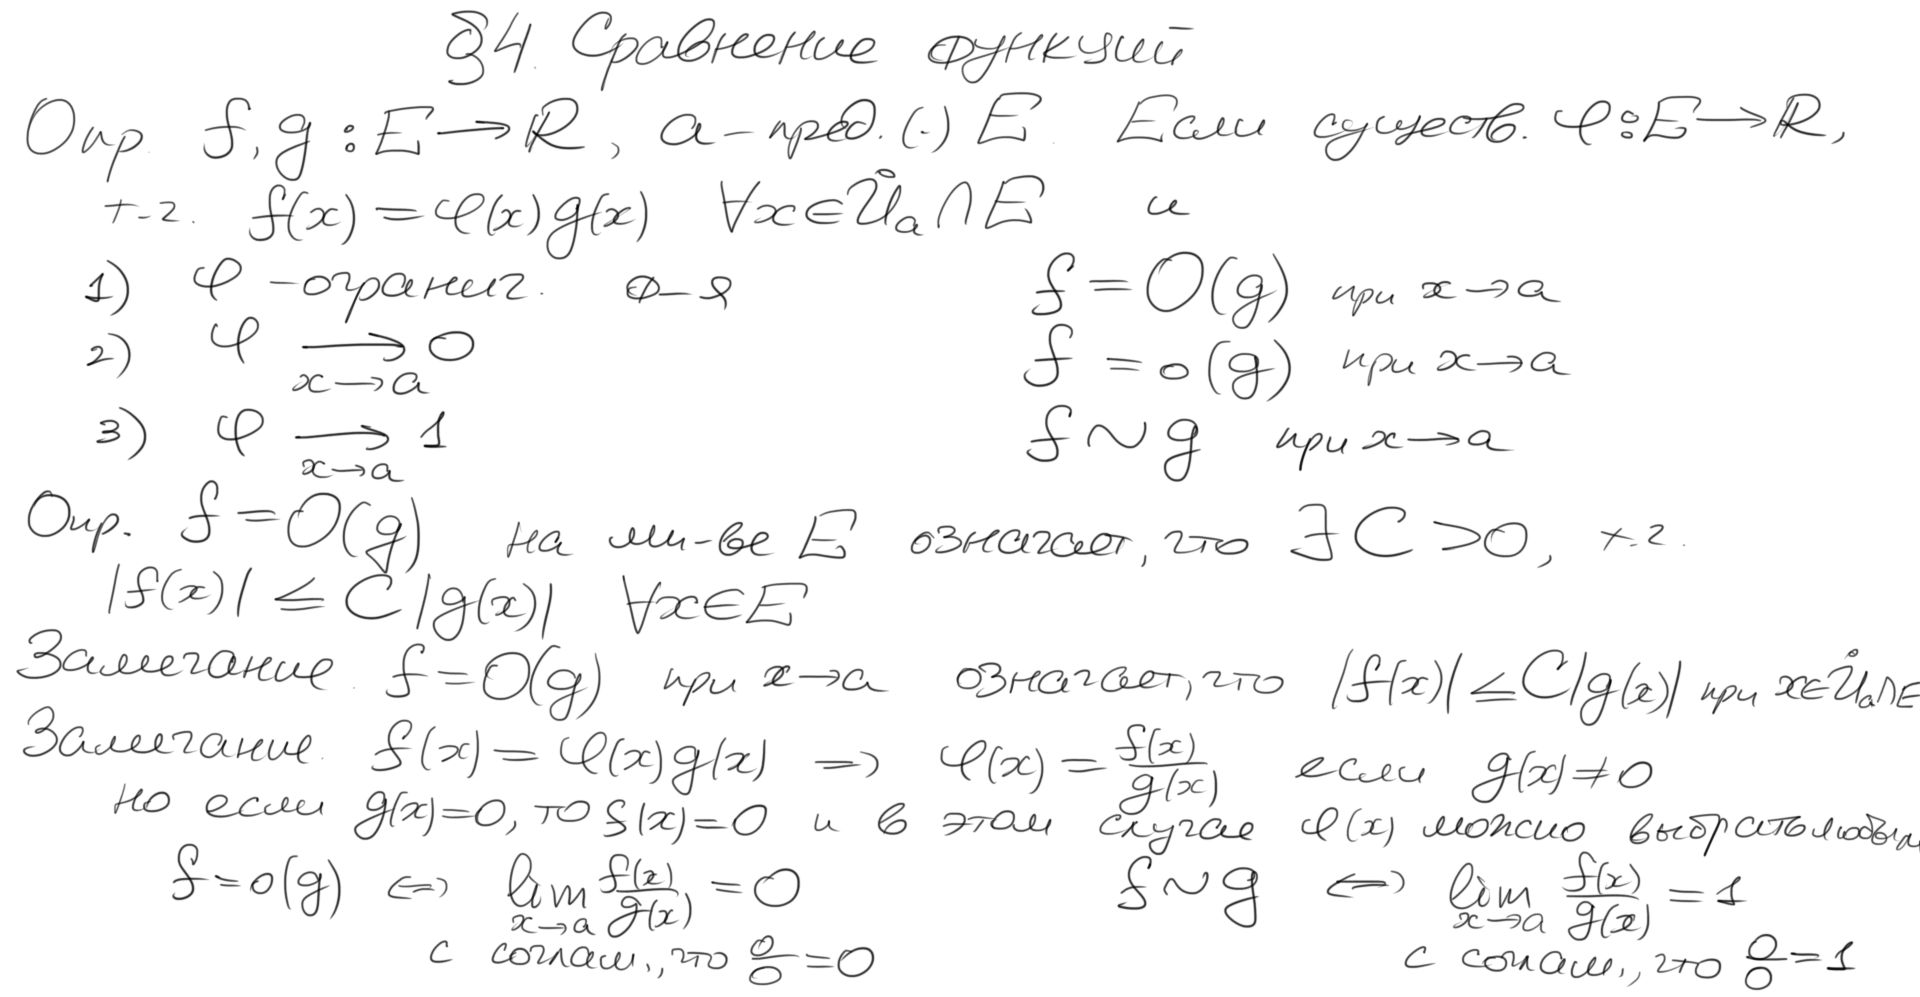 §4. Сравнение функций
Опр. f, g : E → ℝ, a – пред. (·) E. Если существ. φ : E → ℝ,
т.ч. f(x) = φ(x) g(x) ∀x ∈ Ůₐ ∩ E и
1) φ – огранич. ф-я f = O(g) при x → a
2) φ ⟶ 0 f = o(g) при x → a
x → a
3) φ ⟶ 1 f ~ g при x → a
x → a
Опр. f = O(g) на мн-ве E означает, что ∃ C > 0, т.ч.
|f(x)| ≤ C |g(x)| ∀x ∈ E
Замечание. f = O(g) при x → a означает, что |f(x)| ≤ C|g(x)| при x ∈ Ůₐ ∩ E
Замечание. f(x) = φ(x) g(x) ⇒ φ(x) = f(x)/g(x) если g(x) ≠ 0
но если g(x) = 0, то f(x) = 0 и в этом случае φ(x) можно выбрать любым
f = o(g) ⇔ lim x→a f(x)/g(x) = 0 f ~ g ⇔ lim x→a f(x)/g(x) = 1
с соглаш., что 0/0 = 0 с соглаш., что 0/0 = 1